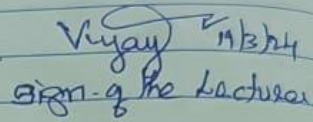 Vijay 19/3/24
Sign. of the Lecturer